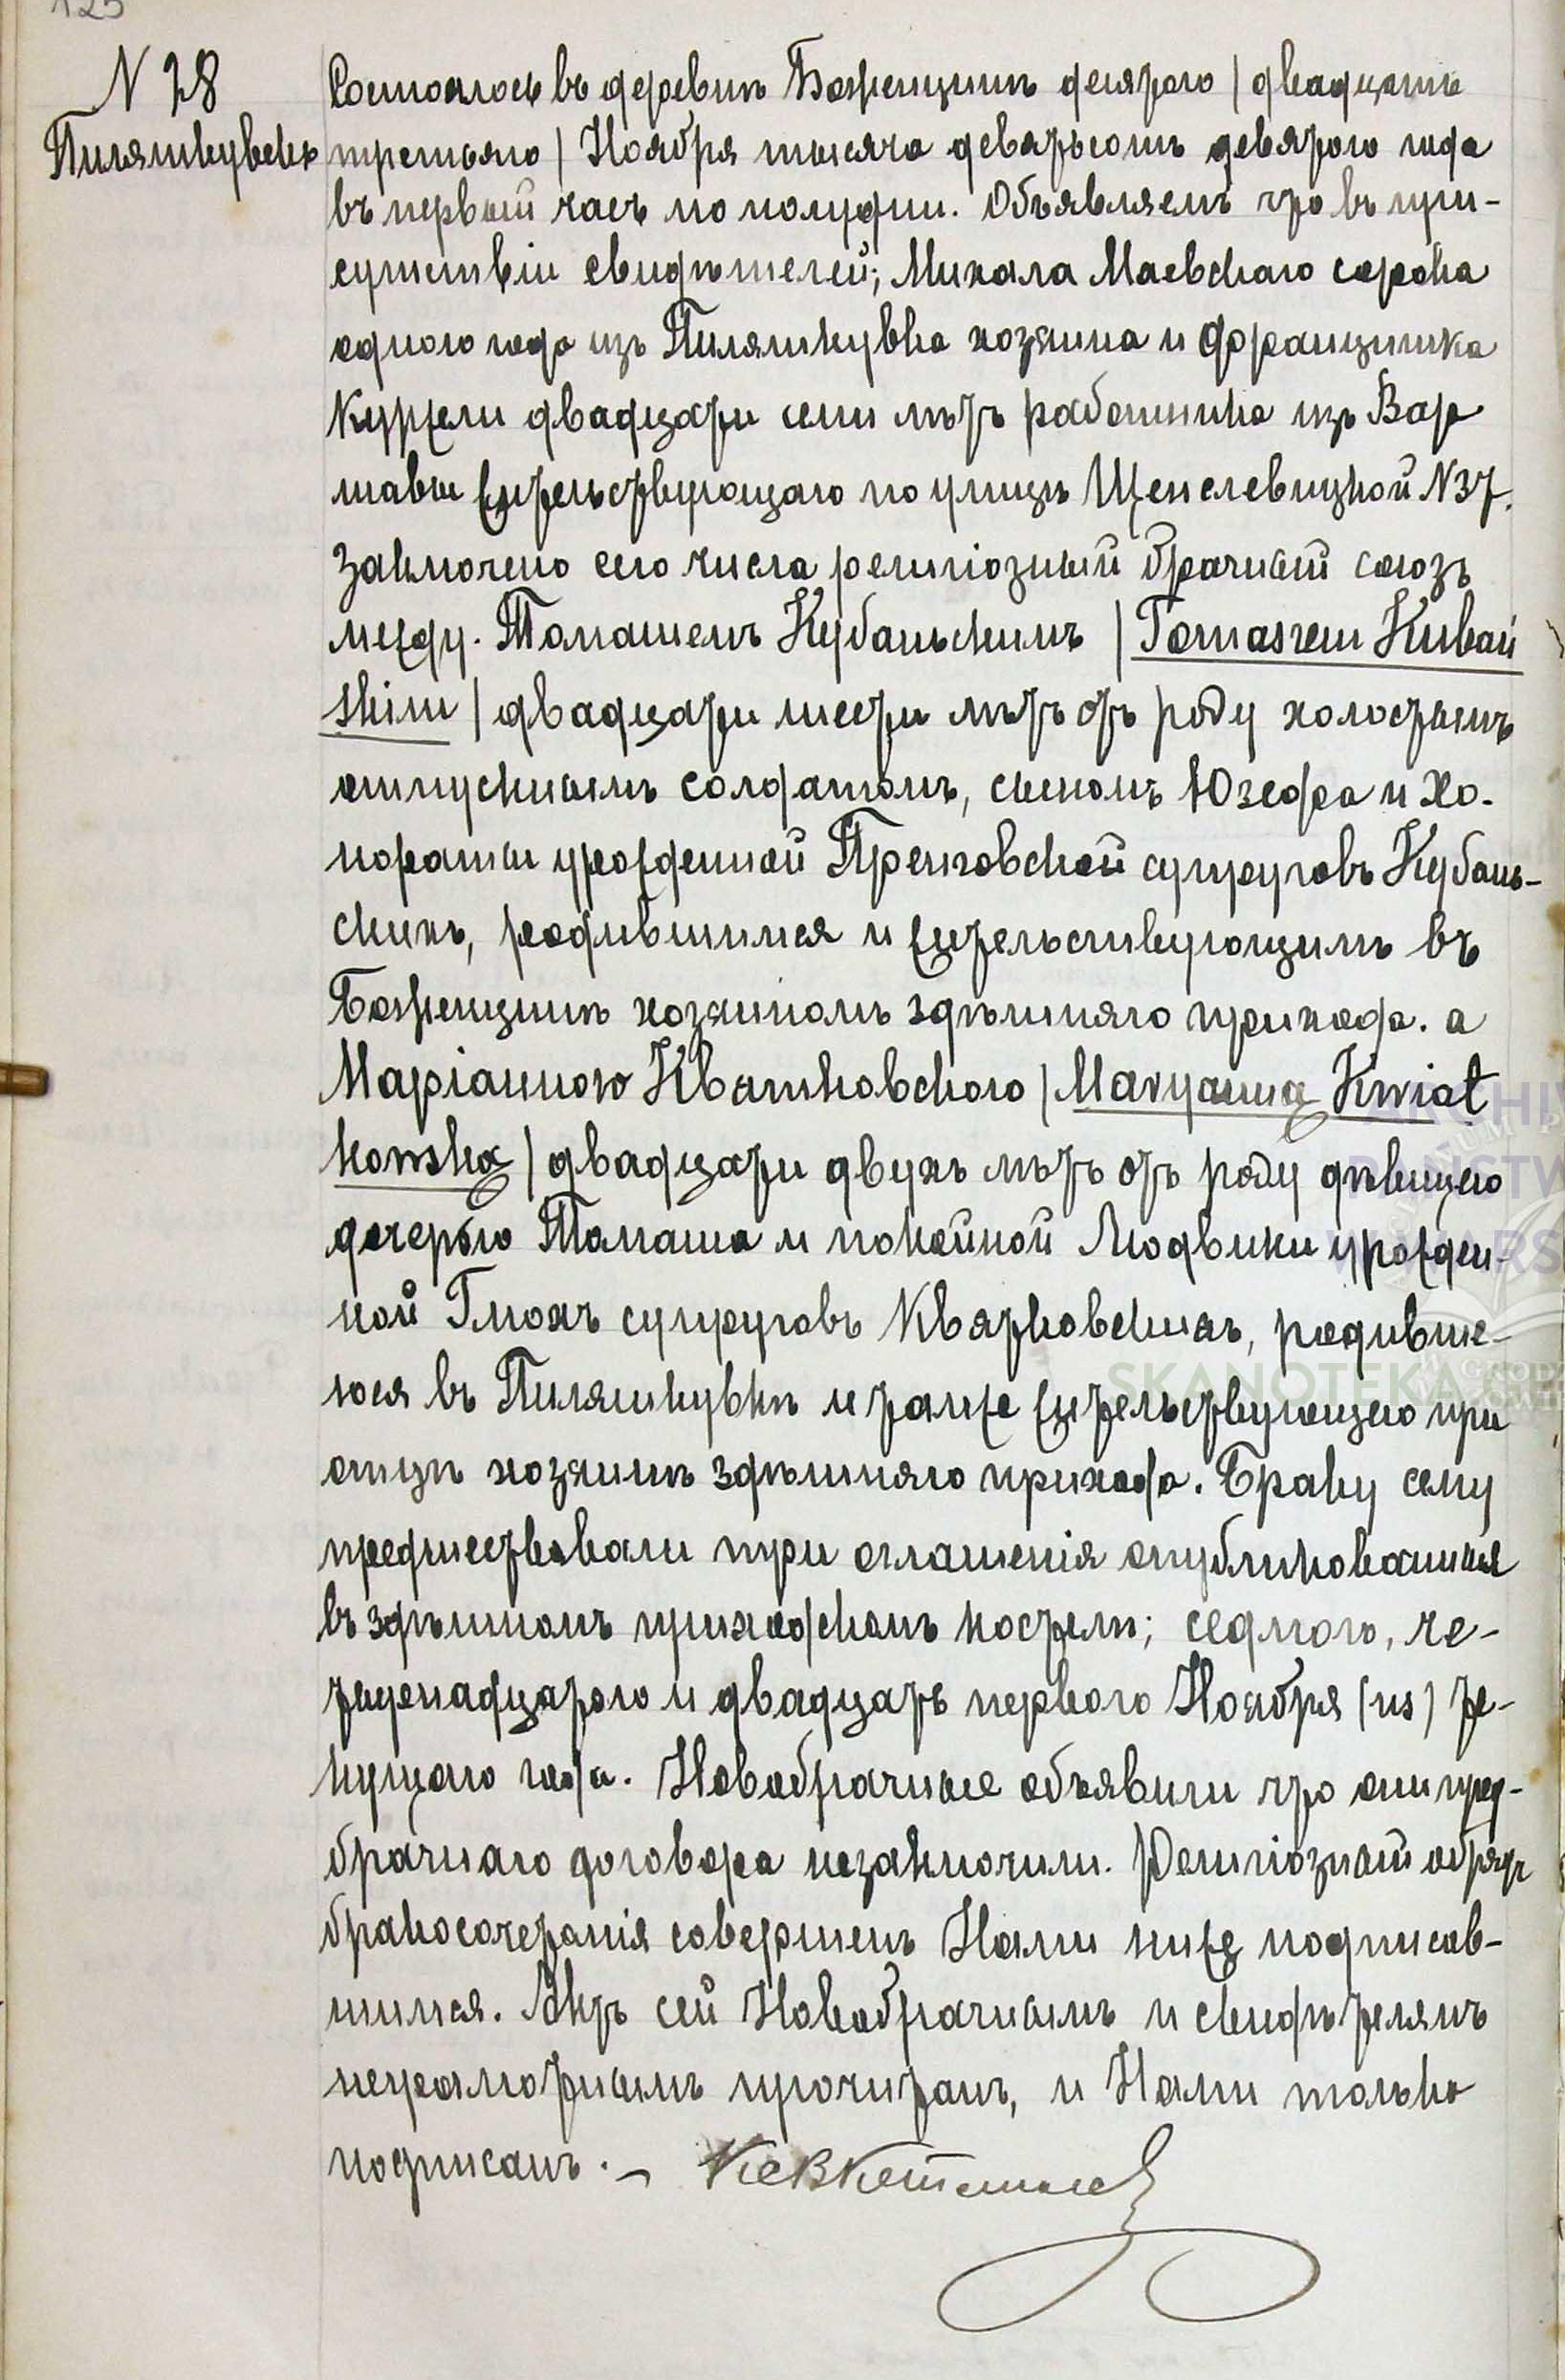 125
N 28
Пиляшкувекъ
Состоялось въ деревнѣ Боженцинѣ десятого / двадцать
третьяго / Ноября тысяча девятьсотъ девятого года
въ первый часъ по полудни. Объявляемъ что въ при-
сутствіи свидѣтелей; Михала Маевскаго сорока
одного года изъ Пиляшкувка хозяина и Францишка
Куржели двадцати семи лѣтъ работника изъ Вар
шавы жительствующаго по улицѣ Щенслевицкой N37.
Заключено сего числа религіозный брачный союзъ
между. Томашемъ Кубаньскимъ / Tomaszem Kubań
skim / двадцати шести лѣтъ отъ роду холостымъ
отпускнымъ солдатомъ, сыномъ Юзефа и Хо-
нораты урожденной Пренговской супруговъ Кубань-
скихъ, родившимся и жительствующимъ въ
Боженцинѣ хозяиномъ здѣшняго прихода. а
Маріанною Квятковского / Maryanną Kwiat
kowską / двадцати двухъ лѣтъ отъ роду дѣвицею
дочерью Томаша и покойной Людвики урожден-
ной Гмохъ супруговъ Квятковскихъ, родивше-
юся въ Пиляшкувкѣ и также жительствующею при
отцѣ хозяинѣ здѣшняго прихода. Браку сему
предшествовали три оглашенія опубликованныя
въ здѣшномъ приходскомъ костелѣ; седмого, че-
тыренадцатого и двадцать первого Ноября (нs) те-
кущаго года. Новобрачные объявили что они пред-
брачнаго договора незаключили. Религіозный обрядъ
бракосочетанія совершенъ Нами ниже подписав-
шимся. Актъ сей Новобрачнымъ и свидѣтелямъ
неграмотнымъ прочитанъ, и Нами только
подписанъ. –
SKANOTEKA